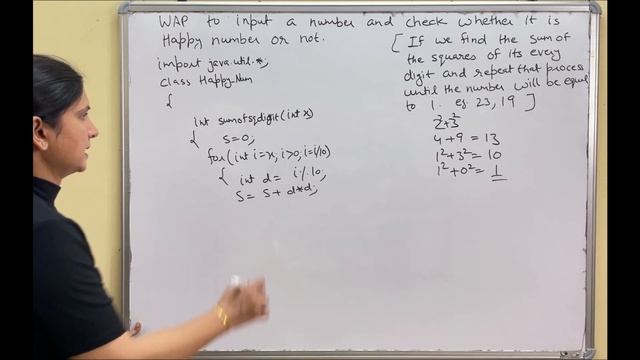 WAP to input a number and check whether it is
Happy number or not.
[ If we find the sum of
the squares of its every
digit and repeat that process
until the number will be equal
to 1. eg. 23, 19 ]
import java.util.*;
class Happy_Num
{
int sumofsqdigit(int x)
{ s=0;
for(int i=x; i>0; i=i/10)
{ int d= i%10;
s= s+d*d;
2²+3²
4+9=13
1²+3²=10
1²+0²=1